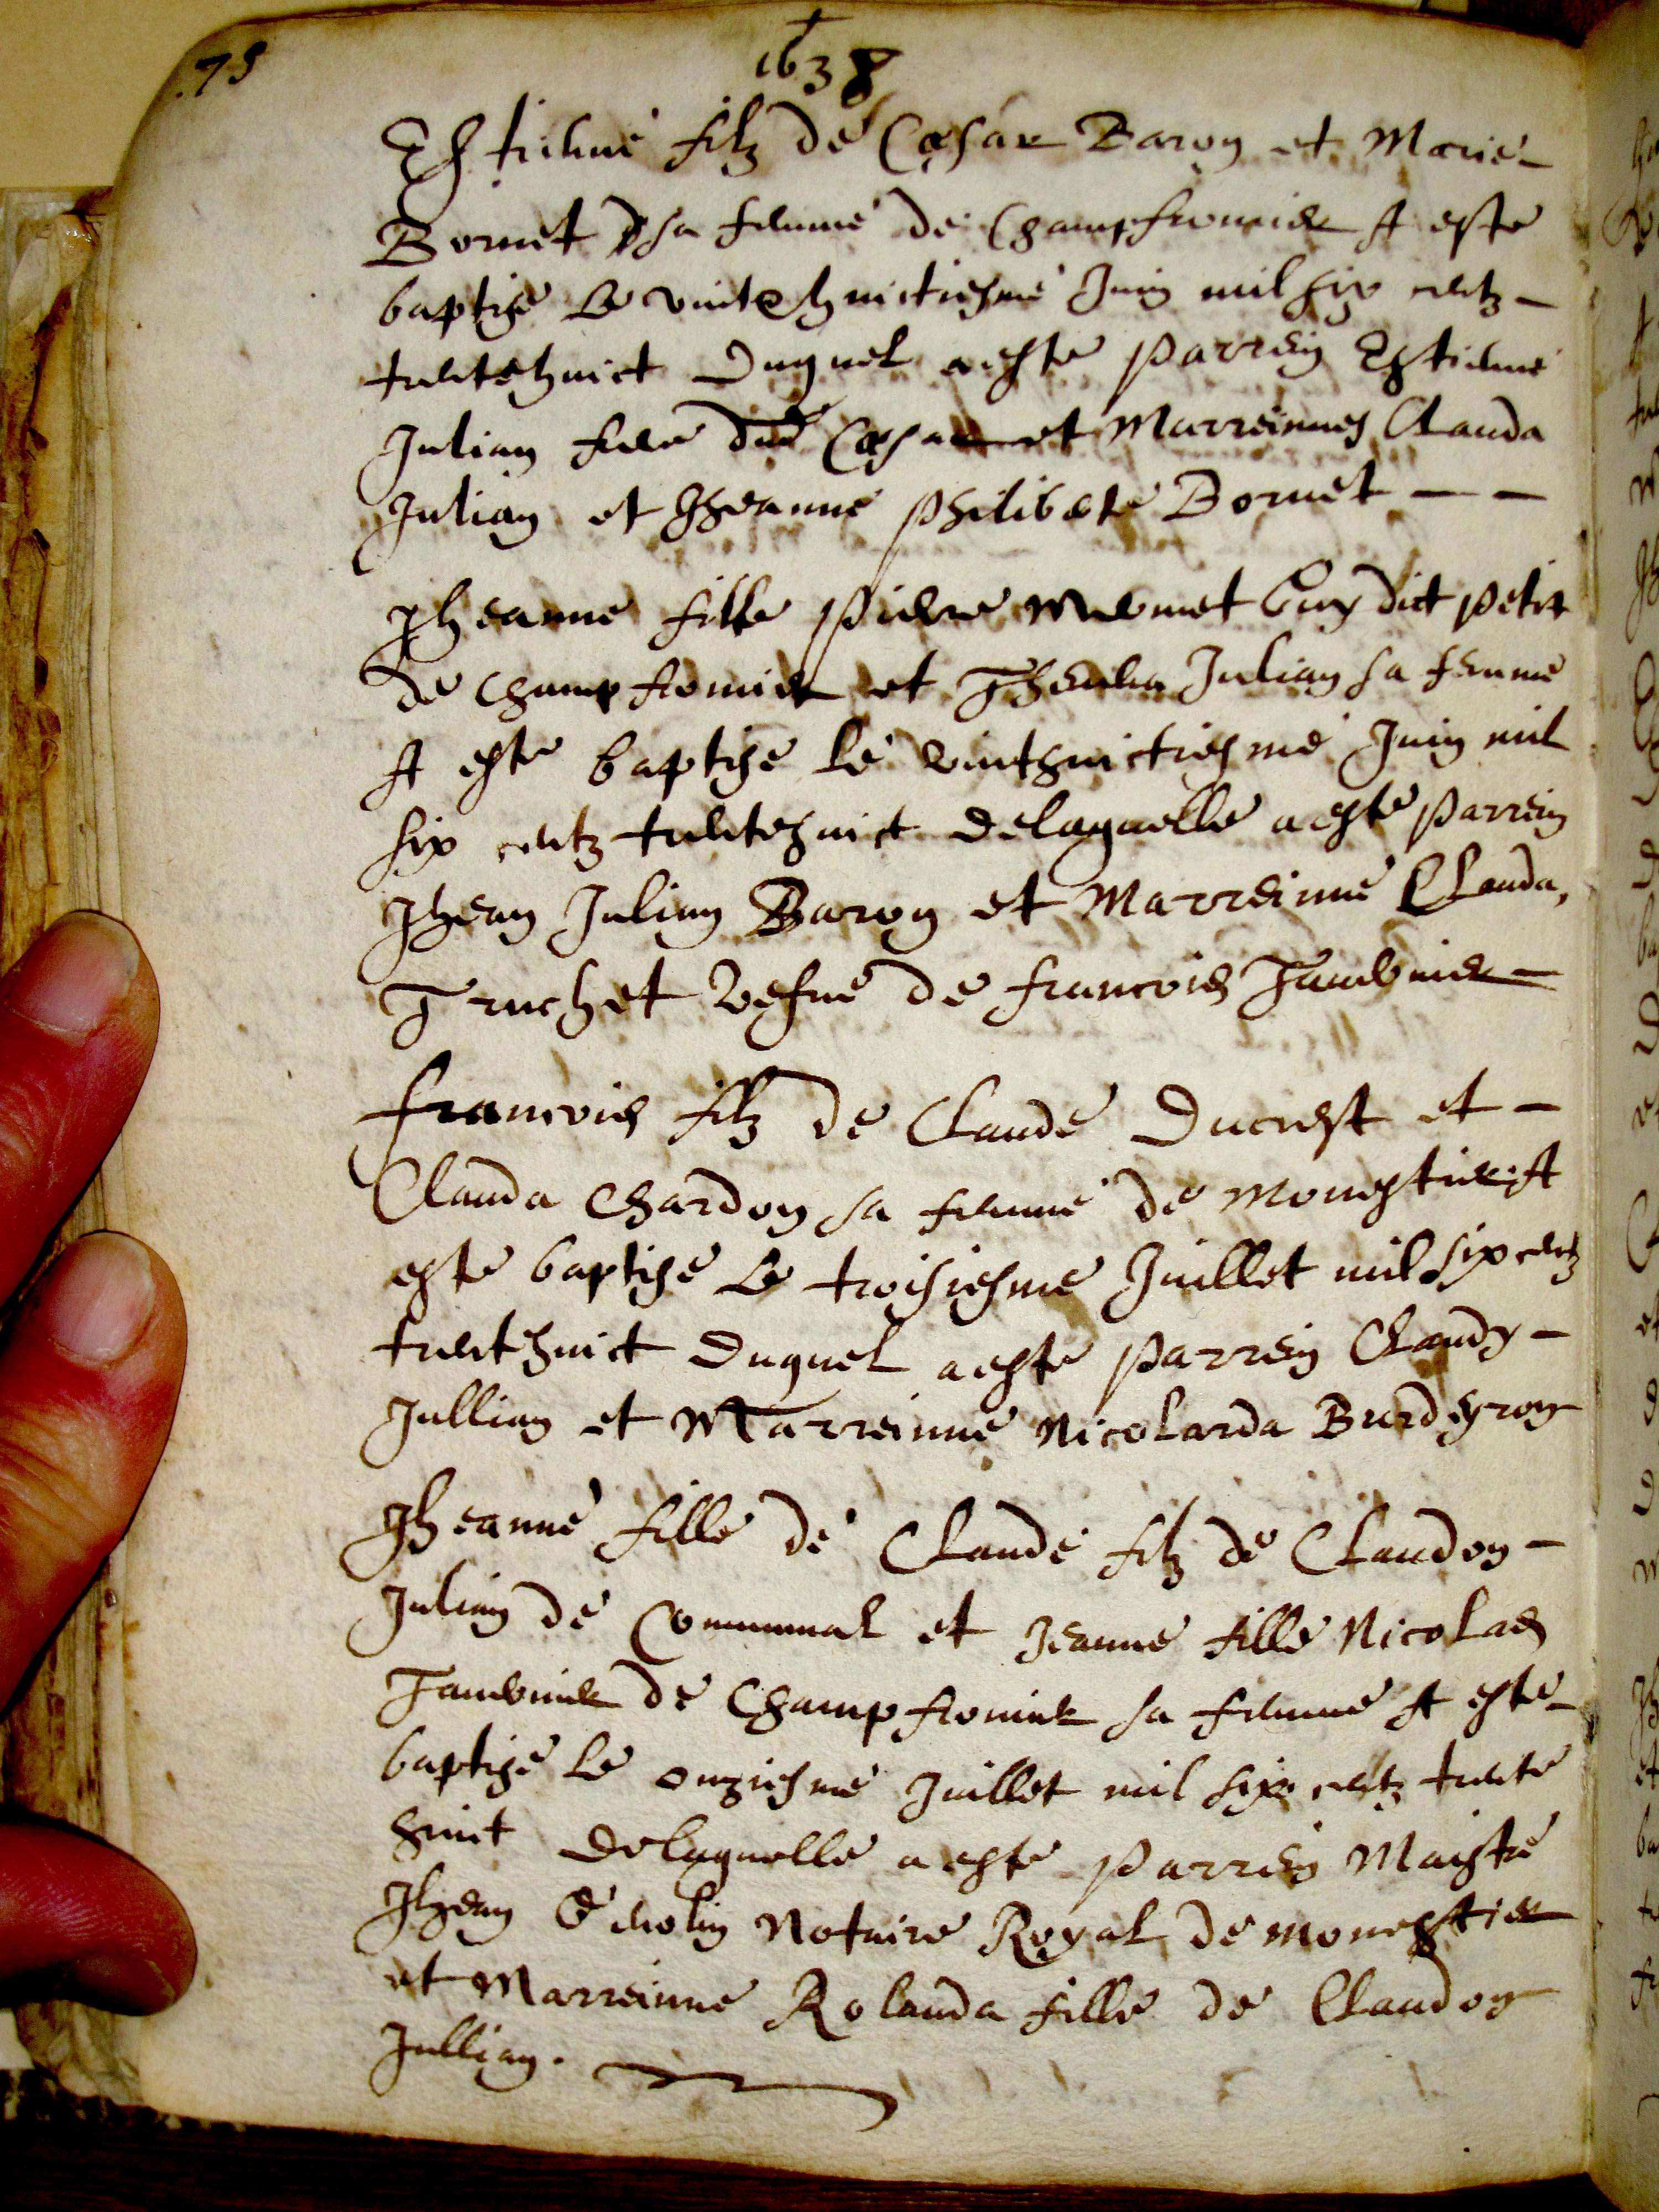 75
1638
Estienne filz de Cæsar Baron et Marie
Bornet sa femme de Champfromier A este
baptise le vintehuictiesme Juin mil six centz
trentehuict Duquel a este parrein Estienne
Julian frere dud Cæsar et Marreinnes Clauda
Julian et Jheanne philiberte Bornet
Jheanne fille pierre mermet Guy dict petit
de Champfromier et Thevena Julian sa femme
A este baptise le vinthuictiesme Juin mil
six centz trentehuict delaquelle a este parrein
Jhean Julian Baron et Marreinne Clauda
Truchet vefve de francois Tavernier
francois filz de Claude Ducrest et
Clauda Chardon sa femme de monestier A
este baptise le troisiesme Juillet mil six centz
trenthuict duquel a este parrein Claudy
Jullian et Marreinne Nicolarda Burdeyron
Jheanne fille de Claude filz de Claudon
Julian de Communal et Jeanne fille Nicolas
Tavernier de Champfromier sa femme A este
baptise le onziesme Juillet mil six centz trente
huict delaquelle a este parrein Maistre
Jhean Notaire Royal de monestier
et Marreinne Rolanda fille de Claudon
Jullian.